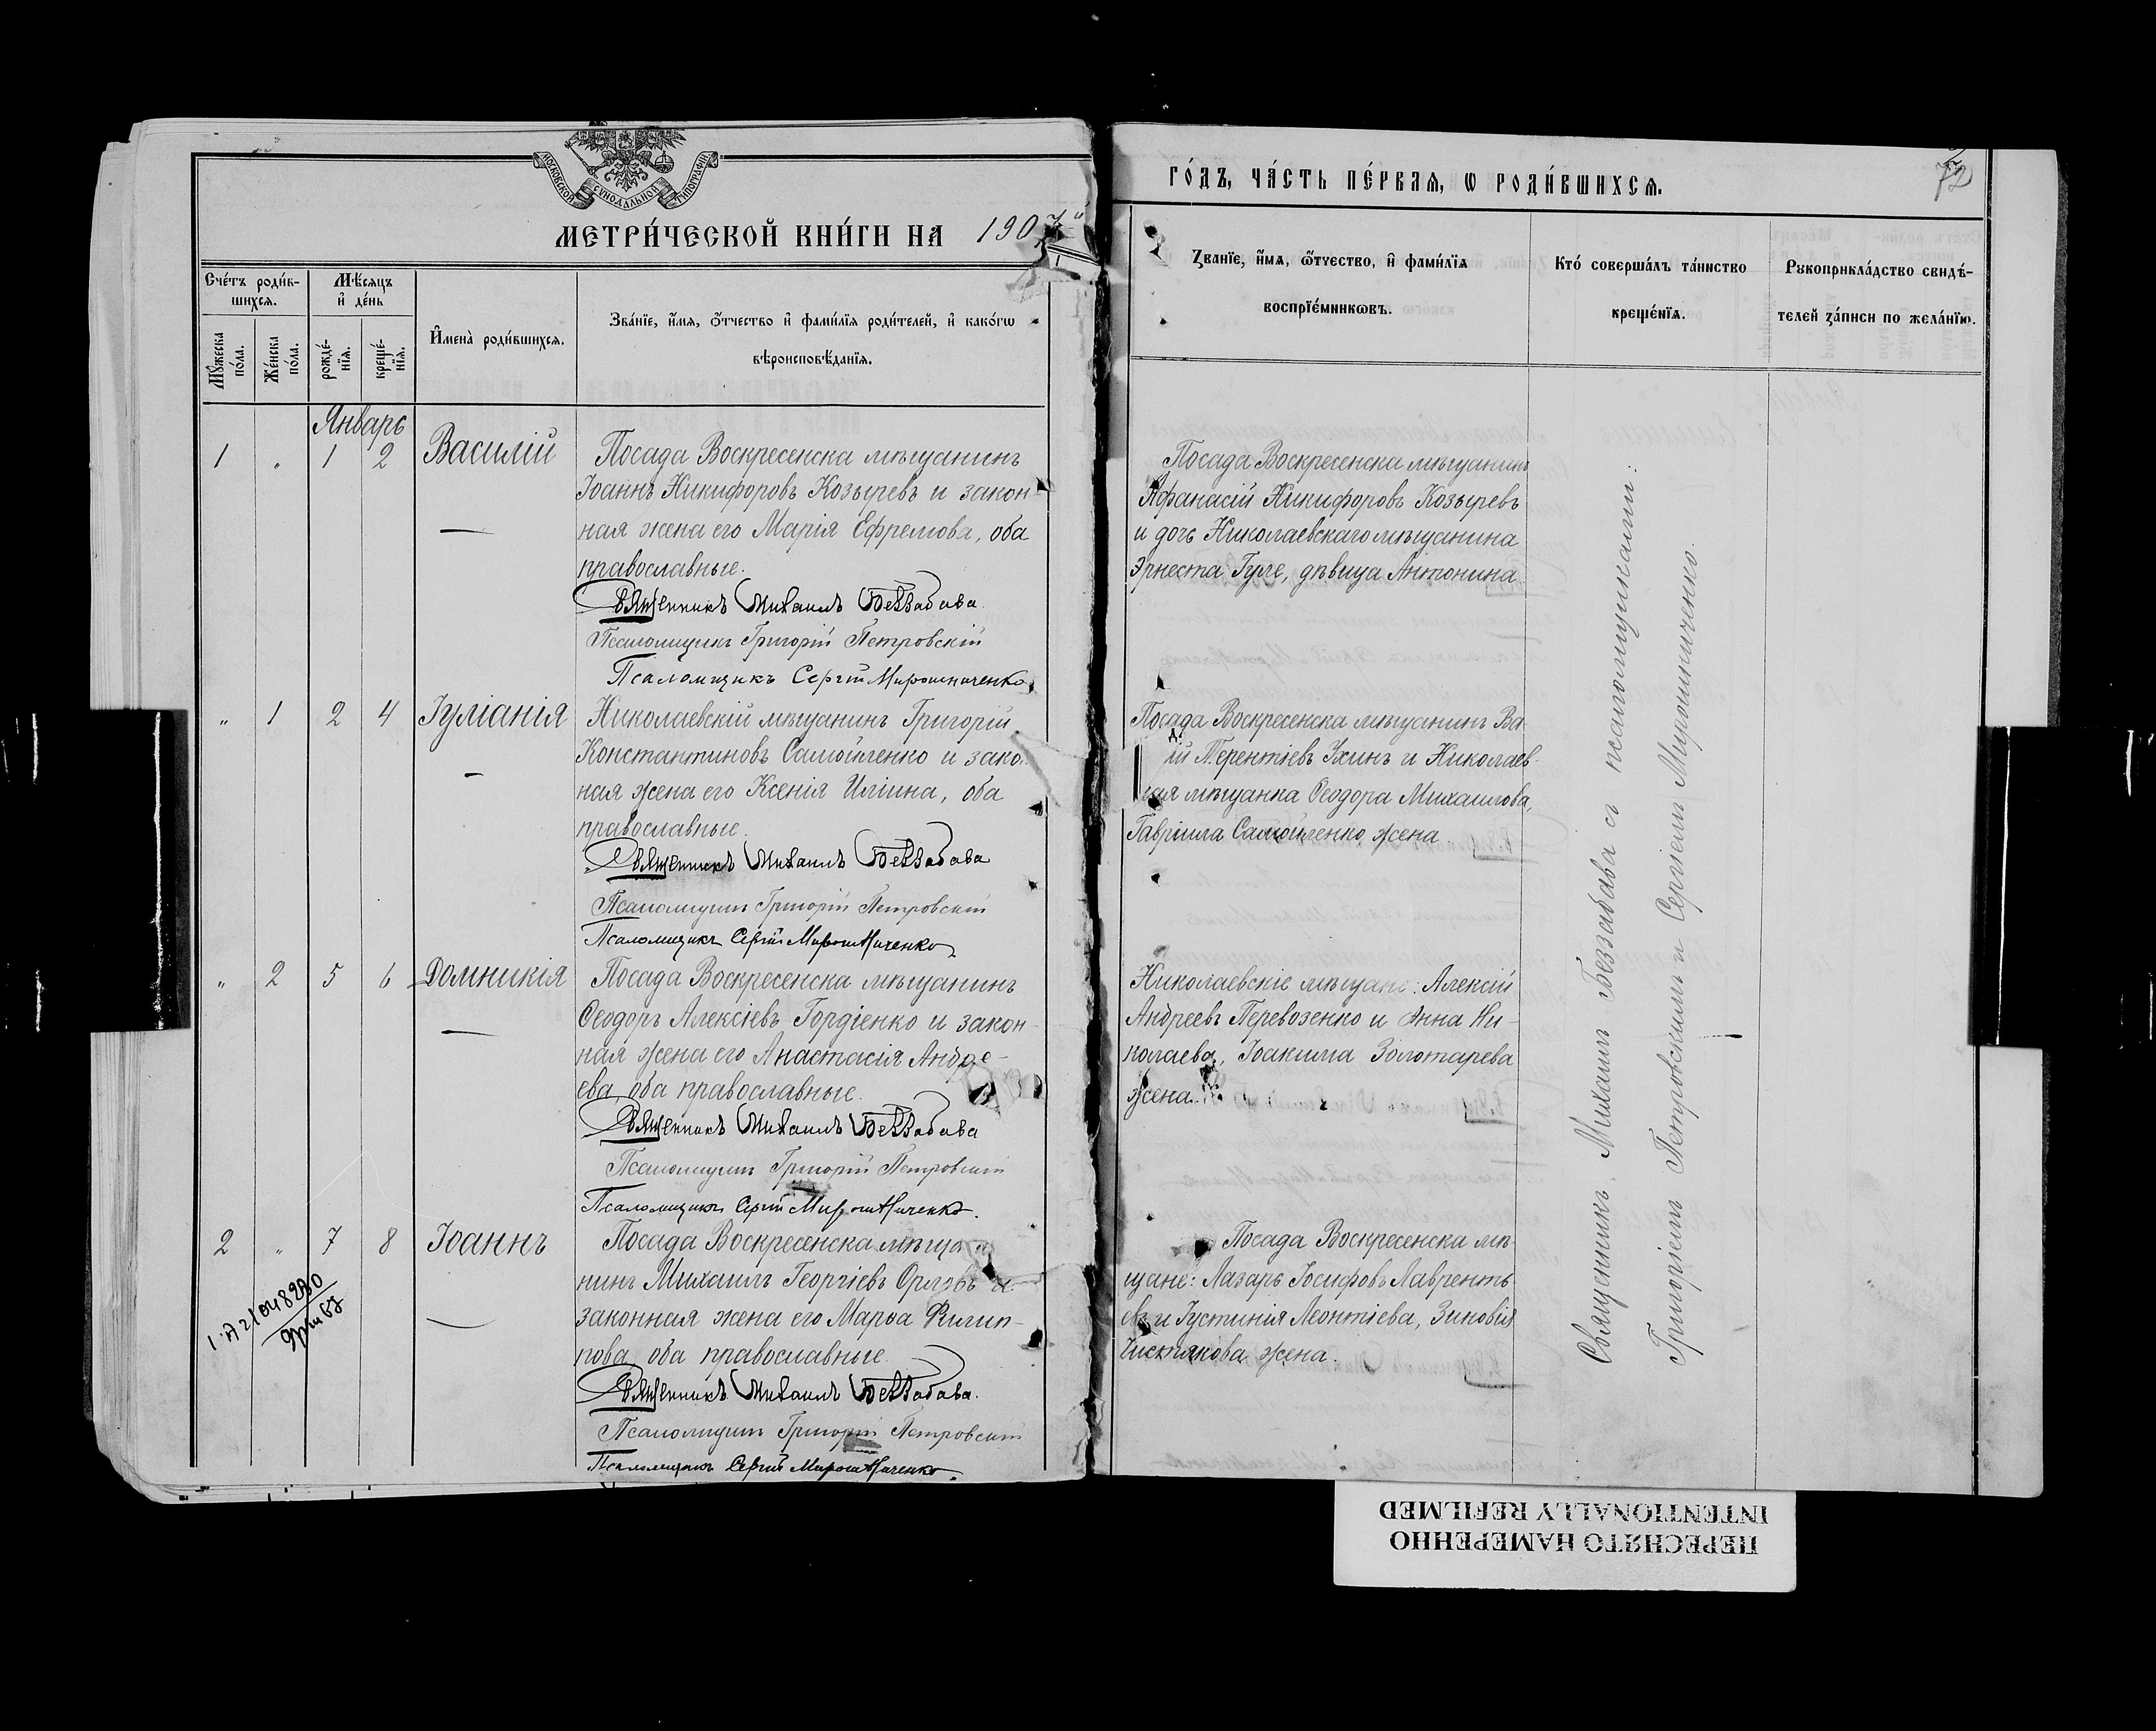 МОСКОВСКОЙ СѴНОДАЛЬНОЙ ТИПОГРАФІИ
МЕТРИ́ЧЕСКОЙ КНИ́ГИ НА 1907
Счéтъ роди́в-
шихся.
Мѣ́сяцъ
и҆ дéнь
Мꙋ́жеска
пóла.
Же́нска
пóла.
рожде́-
нїя.
креще́-
нїя.
И҆мена̀ роди́вшихся.
Зва́нїе, и҆́мя, ѻ҆́тчество и҆ фами́лїя роди́телей, и҆ како́гѡ
вѣроисповѣ́данїя.
Январь
1 " 1 2 Василій
Посада Воскресенска мѣщанинъ
Іоаннъ Никифоровъ Козыревъ и закон-
ная жена его Марія Ефремова, оба
православные.
Священникъ Михаилъ Беззабава.
Псаломщикъ Григорій Петровскій
Псаломщикъ Сергій Мирошниченко
" 1 2 4 Іуліанія
Николаевскій мѣщанинъ Григорій
Константиновъ Самойленко и зако
ная жена его Ксенія Иліина, оба
православные.
Священникъ Михаилъ Беззабава
Псаломщикъ Григорій Петровскій
Псаломщикъ Сергій Мирошниченко
" 2 5 6 Домникія
Посада Воскресенска мѣщанинъ
Ѳеодоръ Алексіевъ Гордіенко и закон-
ная жена его Анастасія Андре-
ева, оба православные.
Священникъ Михаилъ Беззабава
Псаломщикъ Григорій Петровскій
Псаломщикъ Сергій Мирошниченко.
2 " 7 8 Іоаннъ
Посада Воскресенска мѣща
нинъ Михаилъ Георгіевъ Орловъ и
законная жена его Марѳа Филип-
пова, оба православные.
Священникъ Михаилъ Беззабава.
Псаломщикъ Григорій Петровскій
Псаломщикъ Сергій Мирошниченко.
72
ГО́ДЪ, ЧА́СТЬ ПЕ́РВАЯ, Ѡ РОДИ́ВШИХСЯ.
Зва́нїе, и҆́мя, ѻ҆́тчество, и҆ фами́лїя
воспрїе́мникѡвъ.
Кто́ соверша́лъ та́инство
креще́нїя.
Рꙋкоприкла́дство свидѣ́-
телей за́писи по жела́нїю.
Посада Воскресенска мѣщанинъ
Афанасій Никифоровъ Козыревъ
и дочь Николаевскаго мѣщанина
Эрнеста Гуле, дѣвица Антонина.
Посада Воскресенска мѣщанинъ Ва-
ій Терентіевъ Ухинъ и Николаев-
ская мѣщанка Ѳеодора Михаилова,
Гавріила Самойленко, жена
Николаевскіе мѣщане: Алексій
Андреевъ Перевозенко и Анна Ни-
колаева, Іоакима Золотарева
жена.
Посада Воскресенска мѣ-
щане: Лазарь Іосифовъ Лавренть-
евъ и Іустинія Леонтіева, Зиновія
Чистякова жена.
Священникъ Михаилъ Беззабава съ псаломщиками:
Григоріемъ Петровскимъ и Сергіемъ Мирошниченко.
ПЕРЕСНЯТО НАМЕРЕННО
INTENTIONALLY REFILMED